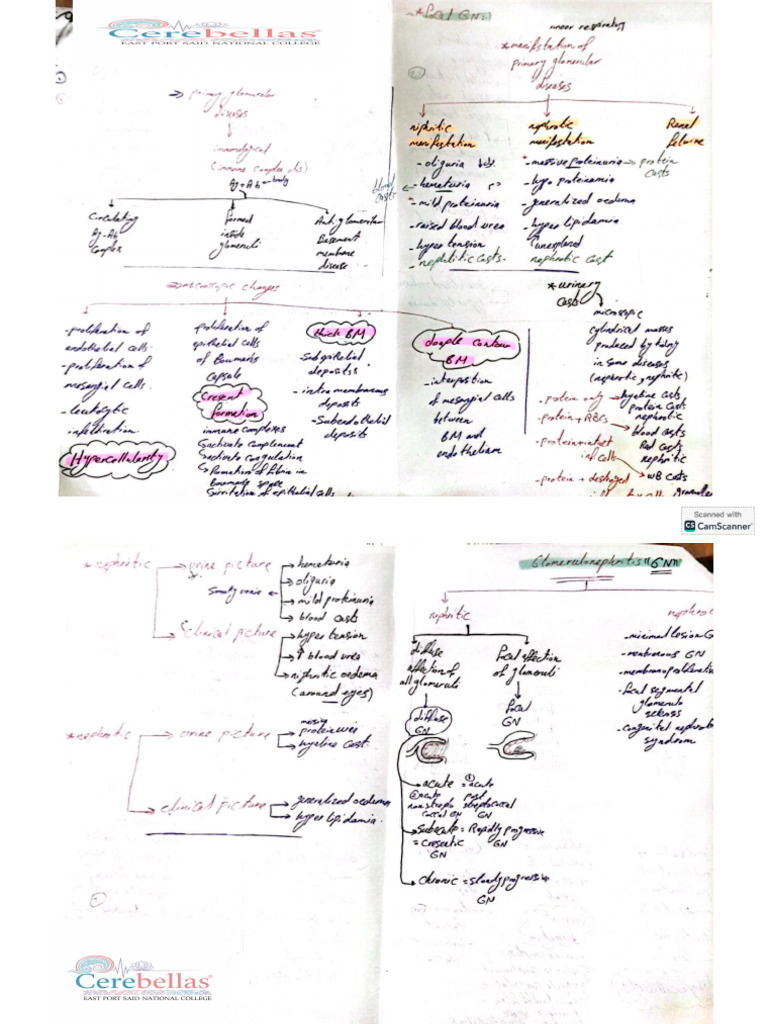 Cerebellas
EAST PORT SAID NATIONAL COLLEGE
primary glomerular
diseases
immunological
(immune complex
Ag + Ab
Circulating
Ag-Ab
Complex
formed
inside
glomeruli
Anti glomerular
Basement
membrane
disease
microscopic changes
-proliferation of
endothelial cells.
-proliferation of
mesangial cells.
-leukocytic
infiltration
Hypercellularity
proliferation of
epithelial cells
of Bowman's
Capsule
Cresent
formation
immune complexes
activate complement
activate coagulation
formation of fibrin in
Bowmans space
irritation of epithelial cells
thick BM
-Subepithelial
deposits
-intramembranous
deposits
-Subendothelial
deposits
*focal GN:
*manifistation of
primary glomerular
diseases
niphritic
manifistation
-oliguria
-hematuria
-mild proteinuria
-raised blood urea
-hyper tension
-nephritic casts.
blood
casts
nephrotic
manifistation
-massive proteinuria → protein
casts
-hypo proteinamia
-generalized oedema
-hyper lipidamia
nephrotic cast
Renal
felaire
double contour
BM
-interposition
of mesangial cells
between
BM and
endothelium
*urinery
Casts
microscopic
cylindrical masses
produced by tubing
in Some diseases
(nephrotic, nephritic)
-protein only → hyaline casts
protein casts
nephrotic
-protein + RBCs → blood casts
Red casts
nephritic
inf cells → WB casts
-protein + destroyed
Scanned with
CS CamScanner
*nephritic
urine picture
Smoky urine
hematuria
oliguria
mild proteinuria
blood casts
Clinical picture
hyper tension
↑ blood urea
niphritic oedema
(around eyes)
*nephrotic
urine picture
massive
proteinuria
hyaline cast.
clinical picture
generalized oedema
hyper lipidamia.
Glomerulonephritis "GN"
nephritic
diffuse
affection of
all glomeruli
diffuse
GN
focal affection
of glomeruli
focal
GN
acute = ① acute
② acute post
non strepto streptococcal
coccal GN GN
Subacute = Rapidly progressive
= Cresentic GN
GN
chronic = slowly progressive
GN
nephro
-minimal lesion G
-membranous GN
-membranoproliferative
-focal segmental
glomerulo
sclerosis
-congenital nephrotic
syndrom
Cerebellas
EAST PORT SAID NATIONAL COLLEGE